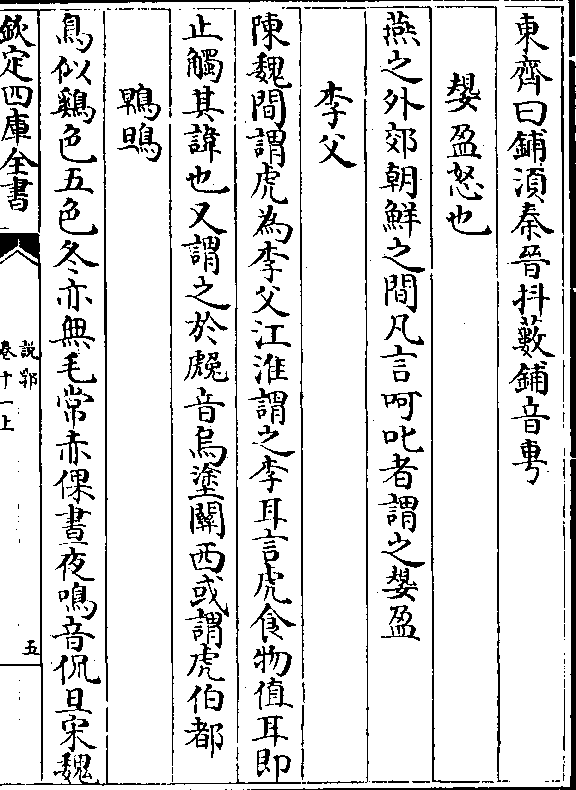 東齊曰鋪湏秦晉抖藪鋪音甹
嫢盈怒也
燕之外郊朝鮮之間凡言呵叱者謂之嫢盈
李父
陳魏間謂虎為李父江淮謂之李耳言虎食物值耳即
止觸其諱也又謂之於䖘音烏塗關西或謂虎伯都
䳚鴠
鳥似鷄色五色冬亦無毛常赤倮晝夜鳴音侃旦宋魏
欽定四庫全書
說郛
卷十一上
五